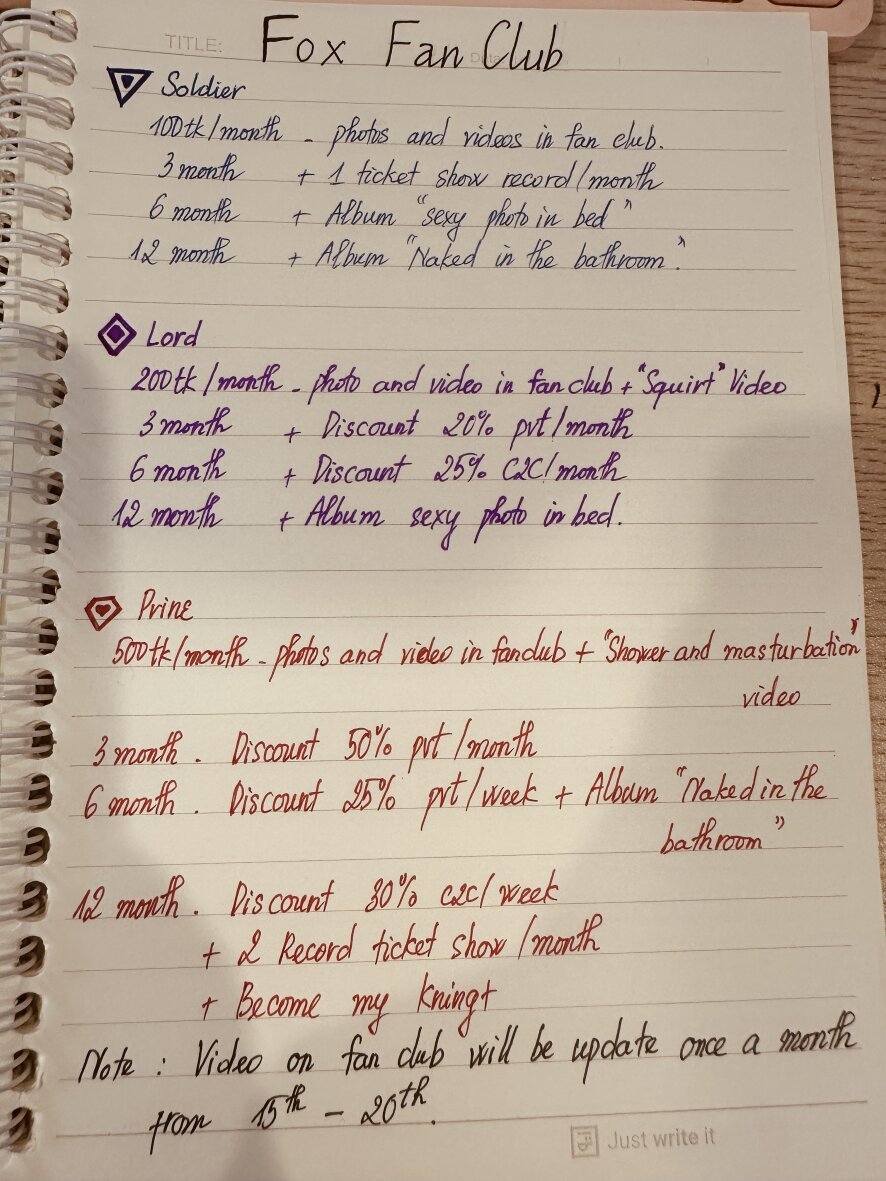 TITLE: Fox Fan Club
Soldier
100tk/month - photos and videos in fan club.
3 month + 1 ticket show record/month
6 month + Album "sexy photo in bed"
12 month + Album "Naked in the bathroom".
Lord
200tk/month - photo and video in fan club + "Squirt" Video
3 month + Discount 20% pvt/month
6 month + Discount 25% C2C/month
12 month + Album sexy photo in bed.
Prine
500tk/month - photos and video in fanclub + "Shower and masturbation"
video
3 month . Discount 50% pvt/month
6 month . Discount 25% pvt/week + Album "Naked in the
bathroom"
12 month . Discount 30% c2c/week
+ 2 Record ticket show /month
+ Become my kningt
Note : Video on fan club will be update once a month
from 15th - 20th.
Just write it